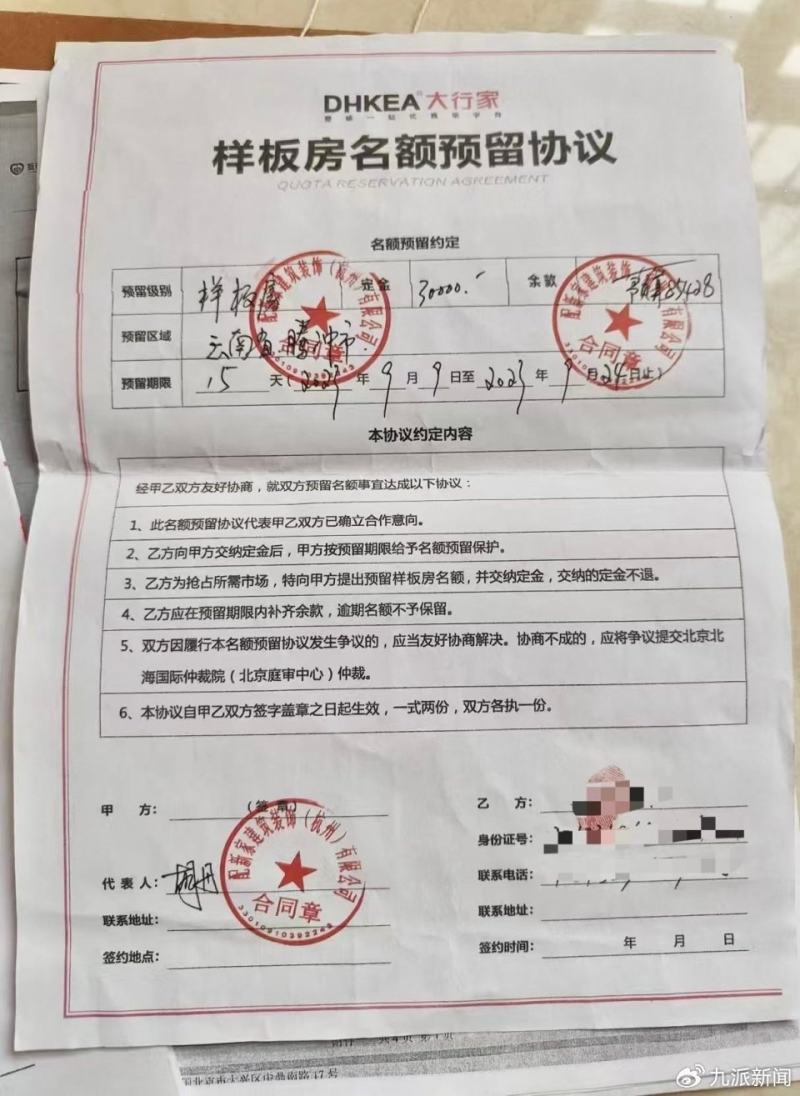 DHKEA®大行家
整装一站式独享平台
样板房名额预留协议
QUOTA RESERVATION AGREEMENT
名额预留约定
预留级别 样板房 定金 30000.- 余款
预留区域 云南省腾冲市
预留期限 15 天(2023年9月9日至2023年9月24日止)
配新家建筑装饰(杭州)有限公司
合同章
配新家建筑装饰(杭州)有限公司
合同章
本协议约定内容
经甲乙双方友好协商,就双方预留名额事宜达成以下协议:
1、此名额预留协议代表甲乙双方已确立合作意向。
2、乙方向甲方交纳定金后,甲方按预留期限给予名额预留保护。
3、乙方为抢占所需市场,特向甲方提出预留样板房名额,并交纳定金,交纳的定金不退。
4、乙方应在预留期限内补齐余款,逾期名额不予保留。
5、双方因履行本名额预留协议发生争议的,应当友好协商解决。协商不成的,应将争议提交北京北
海国际仲裁院(北京庭审中心)仲裁。
6、本协议自甲乙双方签字盖章之日起生效,一式两份,双方各执一份。
甲 方: (签章)
代表人: 胡丹
联系地址:
签约地点:
配新家建筑装饰(杭州)有限公司
合同章
33010910392248
乙 方:
身份证号:
联系电话:
联系地址:
签约时间: 年 月 日
九派新闻